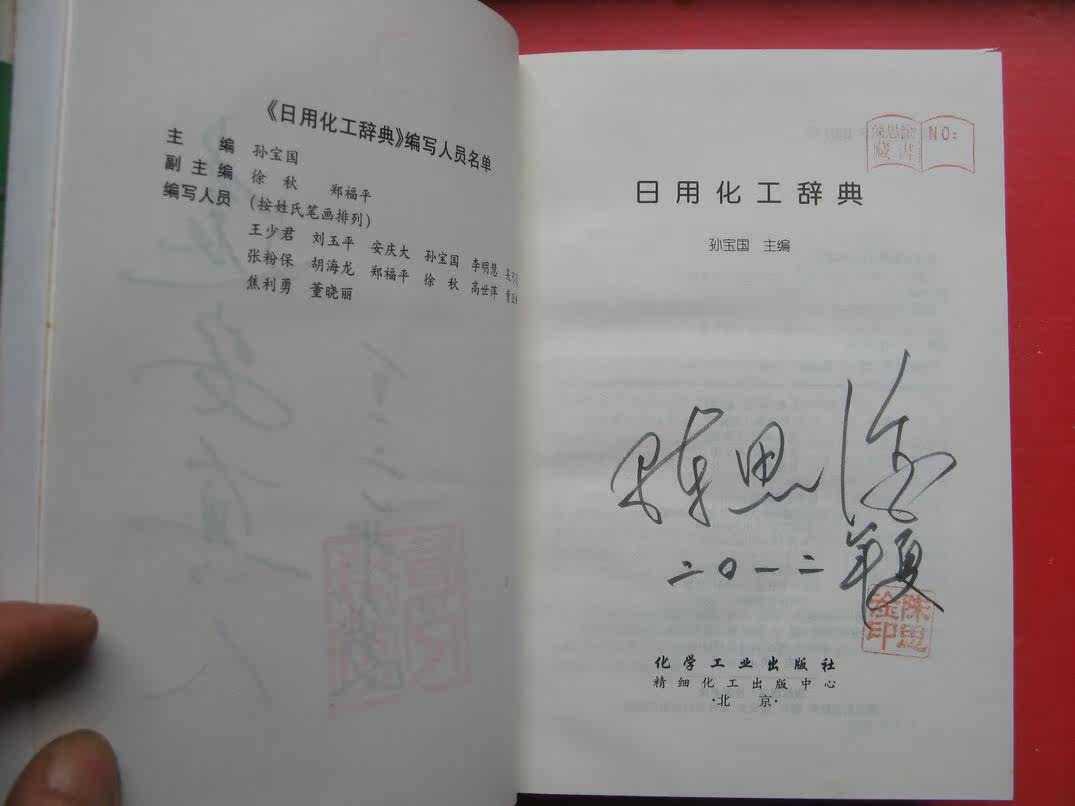 《日用化工辞典》编写人员名单
主 编 孙宝国
副主编 徐秋 郑福平
编写人员 (按姓氏笔画排列)
王少君 刘玉平 安庆大 孙宝国 李明慧
张粉保 胡海龙 郑福平 徐秋 高世萍
焦利勇 董晓丽
藏書
NO:
日用化工辞典
孙宝国 主编
陈思
二〇一二年夏
化学工业出版社
精细化工出版中心
·北 京·